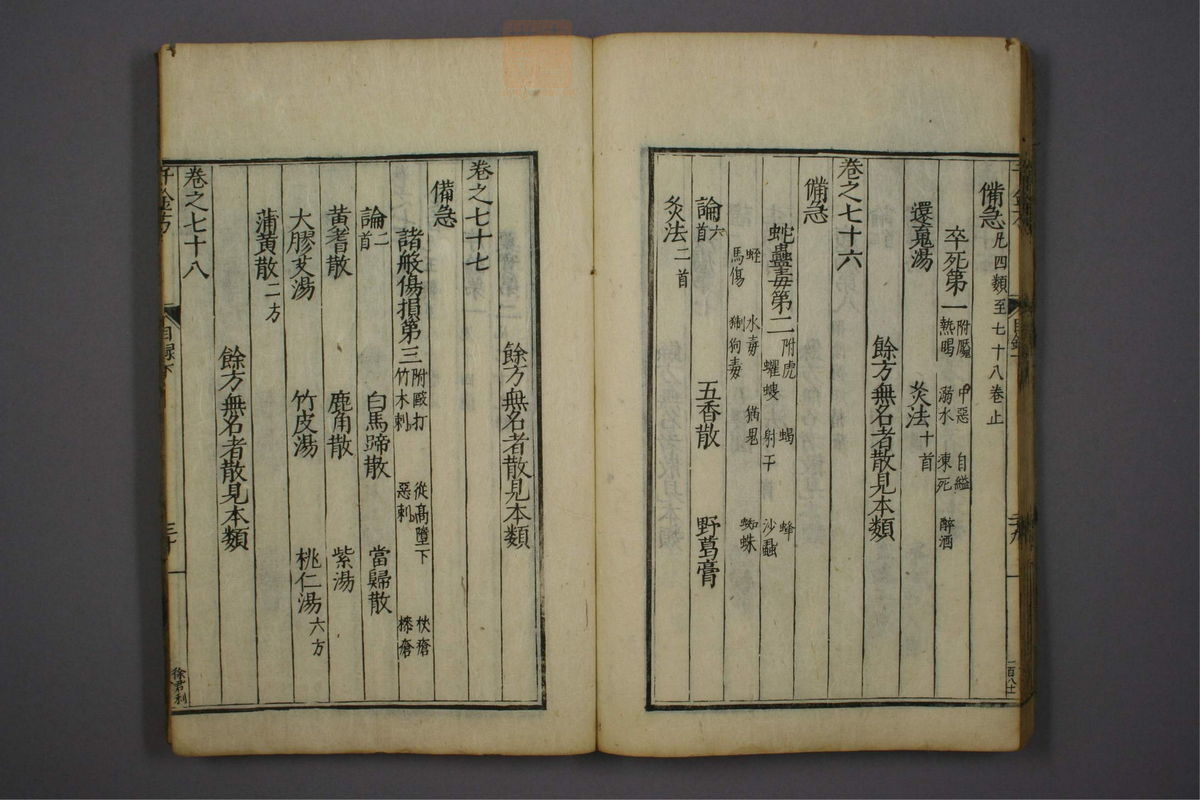 備急凡四類至七十八卷止
卒死第一附魘 中惡 自縊 醉酒 熱暍 溺水 凍死
還䰟湯 灸法十首
餘方無名者散見本類
卷之七十六
備急
蛇蠱毒第二附虎 蝎 蜂 蠼螋 射干 沙蝨
蛭 水毒 猫鬼 馬傷 猘狗毒 蜘蛛
論六首 五香散 野葛膏
灸法二首
餘方無名者散見本類
卷之七十七
備急
諸般傷損第三附毆打 從高墮下 杖瘡 竹木刺 惡刺 㯃瘡
論二首 白馬蹄散 當歸散
黃耆散 鹿角散 紫湯
大膠艾湯 竹皮湯 桃仁湯六方
蒲黃散二方
餘方無名者散見本類
卷之七十八
千金方 目錄下 三十 徐君利